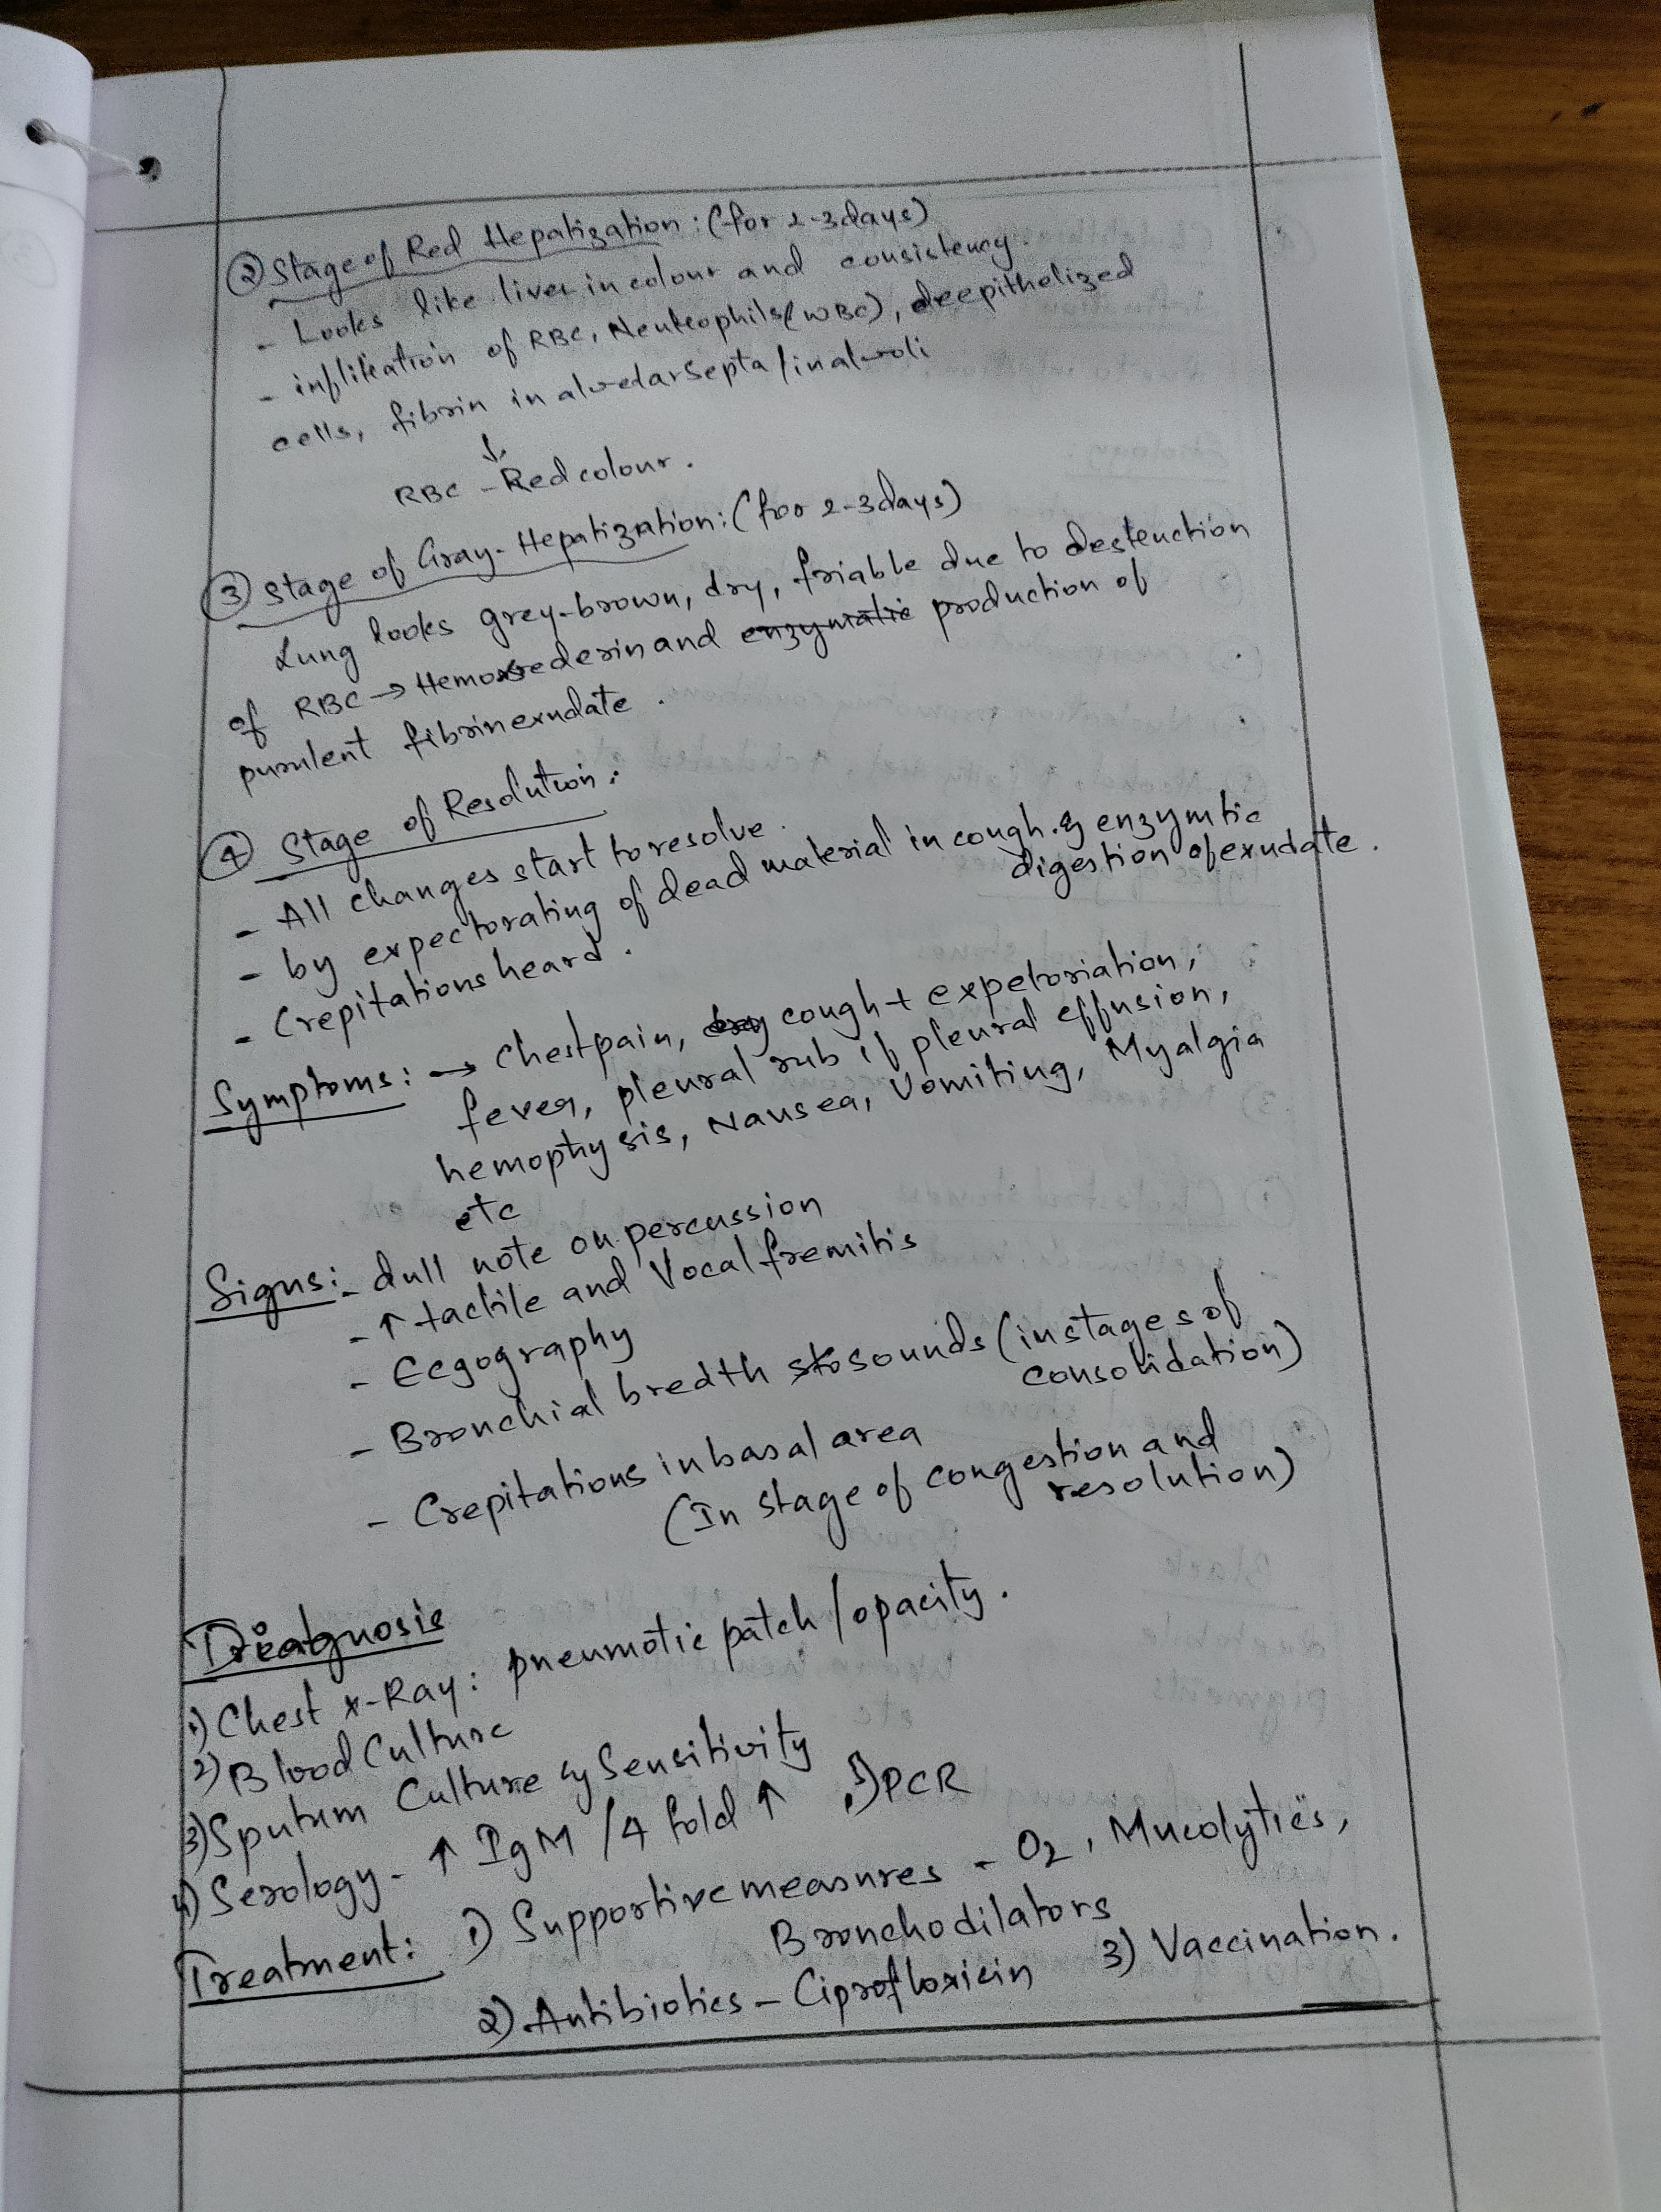 ② Stage of Red Hepatization : (for 2-3 days)
- Looks like liver in colour and consistency.
- infiltration of RBC, Neutrophils (WBC), deepithelized
cells, fibrin in alveolar septa / in alveoli
↓
RBC - Red colour.
③ Stage of Gray-Hepatization : (for 2-3 days)
Lung looks grey-brown, dry, friable due to destruction
of RBC → Hemosrederin and enzymatic production of
purulent fibrin exudate.
④ Stage of Resolution :
- All changes start to resolve.
- by expectorating of dead material in cough. & enzymtic
digestion of exudate.
- Crepitations heard.
Symptoms : → Chest pain, dry cough + expetoriation,
fever, pleural rub if pleural effusion,
hemophysis, Nausea, Vomiting, Myalgia
etc
Signs :- dull note on percussion
- ↑ tactile and Vocal fremitis
- Eegography
- Bronchial bredth sounds (in stages of
consolidation)
- Crepitations in basal area
(In stage of congestion and
resolution)
Diagnosis
1) Chest x-Ray : pneumotic patch / opacity.
2) Blood Culture
3) Sputum Culture & Sensitivity
4) Serology - ↑ IgM / 4 fold ↑ 5) PCR
Treatment : 1) Supportive measures - O2, Mucolytics,
Bronchodilators
2) Antibiotics - Ciprofloxicin 3) Vaccination.